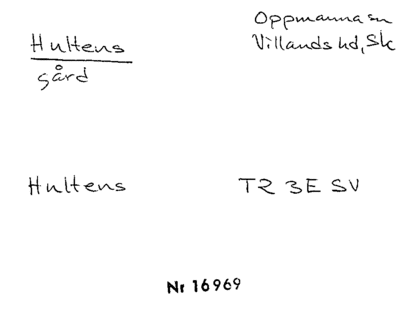 Hultens
gård
Oppmanna sn
Villands hd, Sk
Hultens
TR 3E SV
Nr 16969